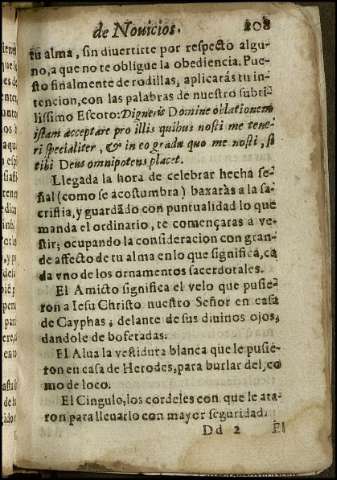 de Novicios. 208
tu alma, sin diuertirte por respecto algu-
no, a que no te obligue la obediencia. Pue-
sto finalmente de rodillas, aplicarás tu in-
tencion, con las palabras de nuestro subti-
lissimo Escoto: Digneris Domine oblationem
istam acceptare pro illis quibus nosti me tene-
ri specialiter, & in eo gradu quo me nosti, si
tibi Deus omnipotens placet.
Llegada la hora de celebrar hecha se-
ñal (como se acostumbra) baxarás a la sa-
cristia, y guardãdo con puntualidad lo que
manda el ordinario, te començaras a ve-
stir; ocupando la consideracion con gran-
de affecto de tu alma en lo que significa, ca
da vno de los ornamentos sacerdotales.
El Amicto significa el velo que pusie-
ron a Iesu Christo nuestro Señor en casa
de Cayphas, delante de sus diuinos ojos,
dandole de bofetadas.
El Alua la vestidura blanca que le pusie-
ron en casa de Herodes, para burlar del, co
mo de loco.
El Cingulo, los cordeles con que le ata-
ron para lleuarlo con mayor seguridad.
Dd 2 El